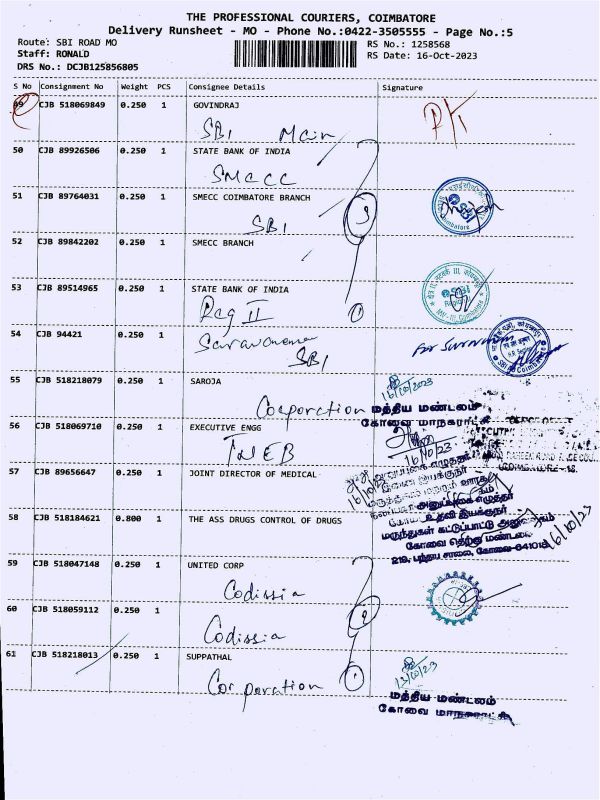 THE PROFESSIONAL COURIERS, COIMBATORE
Delivery Runsheet - MO - Phone No.:0422-3505555 - Page No.:5
Route: SBI ROAD MO
RS No.: 1258568
Staff: RONALD
RS Date: 16-Oct-2023
DRS No.: DCJB125856805
S No Consignment No Weight PCS Consignee Details Signature
49 CJB 518069849 0.250 1 GOVINDRAJ
SBI Main
50 CJB 89926506 0.250 1 STATE BANK OF INDIA
SMECC
51 CJB 89764031 0.250 1 SMECC COIMBATORE BRANCH
SBI
52 CJB 89842202 0.250 1 SMECC BRANCH
53 CJB 89514965 0.250 1 STATE BANK OF INDIA
Reg II
54 CJB 94421 0.250 1 Saravanema
SBI
for Saravanan
55 CJB 518218079 0.250 1 SAROJA
16/10/2023
Corporation
மத்திய மண்டலம்
கோவை மாநகராட்சி
56 CJB 518069710 0.250 1 EXECUTIVE ENGG
TNEB
16/10/23
57 CJB 89656647 0.250 1 JOINT DIRECTOR OF MEDICAL
58 CJB 518184621 0.800 1 THE ASS DRUGS CONTROL OF DRUGS
உதவி இயக்குநர்
மருந்துகள் கட்டுப்பாட்டு அலுவலகம்
கோவை தெற்கு மண்டலம்
219, பந்தய சாலை, கோவை-641018
16/10/23
59 CJB 518047148 0.250 1 UNITED CORP
Codissia
60 CJB 518059112 0.250 1
Codissia
61 CJB 518218013 0.250 1 SUPPATHAL
Corporation
மத்திய மண்டலம்
கோவை மாநகராட்சி